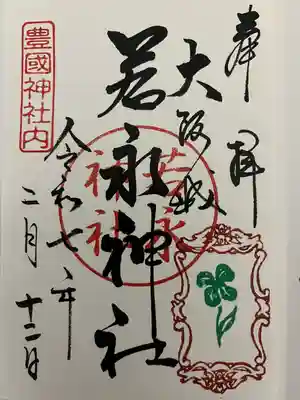 奉拝
大阪城
若永神社
若永神社
令和七年
二月十二日
豊國神社内